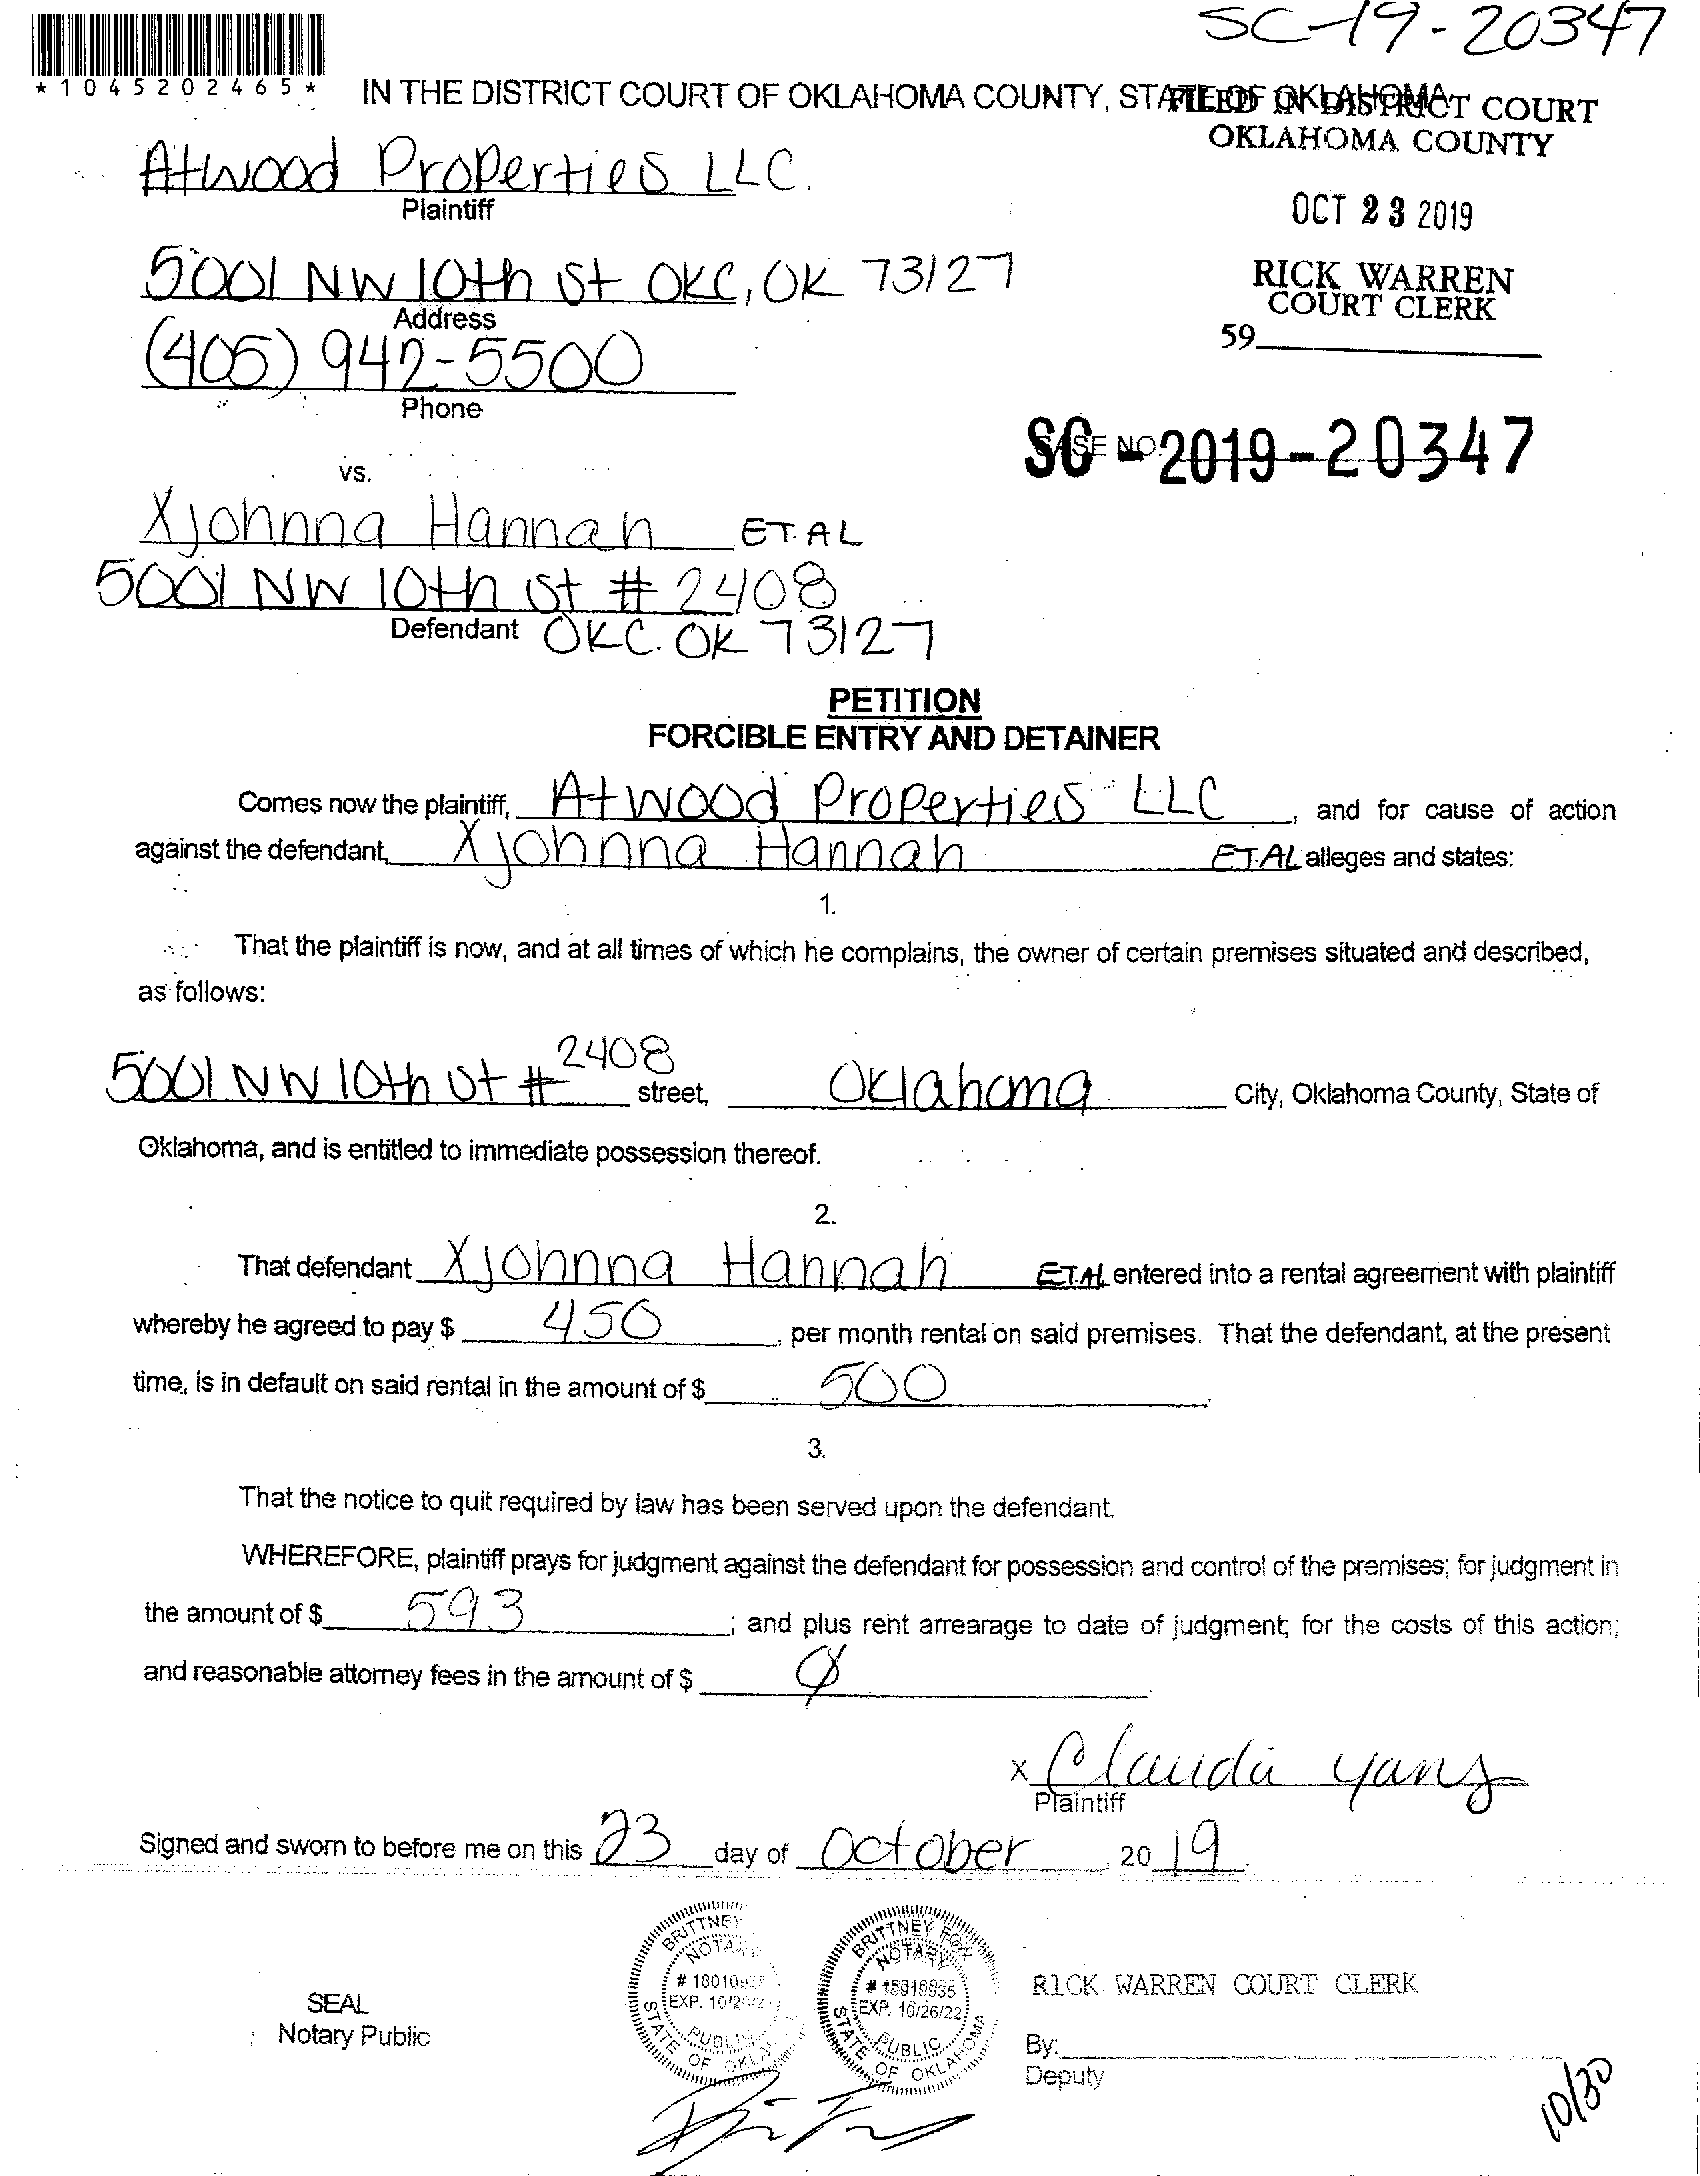 SC-19-20347
*1045202465*
IN THE DISTRICT COURT OF OKLAHOMA COUNTY, STATE OF OKLAHOMA
FILED IN DISTRICT COURT
OKLAHOMA COUNTY
Atwood Properties LLC.
Plaintiff
OCT 23 2019
5001 NW 10th St OKC, OK 73127
Address
RICK WARREN
COURT CLERK
59
(405) 942-5500
Phone
CASE NO.
SC-2019-20347
vs.
Xjohnna Hannah ET.AL
5001 NW 10th St # 2408
Defendant OKC. OK 73127
PETITION
FORCIBLE ENTRY AND DETAINER
Comes now the plaintiff, Atwood Properties LLC, and for cause of action
against the defendant, Xjohnna Hannah ET.AL alleges and states:
1.
That the plaintiff is now, and at all times of which he complains, the owner of certain premises situated and described,
as follows:
5001 NW 10th St # 2408 street, Oklahoma City, Oklahoma County, State of
Oklahoma, and is entitled to immediate possession thereof.
2.
That defendant Xjohnna Hannah ET.AL entered into a rental agreement with plaintiff
whereby he agreed to pay $ 450, per month rental on said premises. That the defendant, at the present
time, is in default on said rental in the amount of $ 500.
3.
That the notice to quit required by law has been served upon the defendant.
WHEREFORE, plaintiff prays for judgment against the defendant for possession and control of the premises; for judgment in
the amount of $ 593; and plus rent arrearage to date of judgment; for the costs of this action;
and reasonable attorney fees in the amount of $ Ø
x Claudia Yanz
Plaintiff
Signed and sworn to before me on this 23 day of October, 2019.
BRITTNEY
NOTARY
PUBLIC
STATE OF OKLA
BRITTNEY
NOTARY
EXP. 10/26/22
PUBLIC
STATE OF OKLAHOMA
SEAL
Notary Public
RICK WARREN COURT CLERK
By:
Deputy
10/30